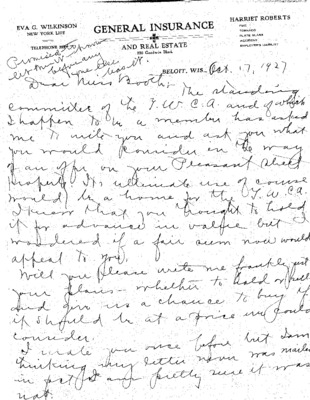 EVA G. WILKINSON
NEW YORK LIFE
HARRIET ROBERTS
GENERAL INSURANCE
AND REAL ESTATE
BELOIT, WIS., Oct. 17, 1927
Dear Miss Booth:
The standing
committee of the Y.W.C.A. and of which
I happen to be a member has asked
me to write you and ask you what
you would consider in the way
of an offer on your Pleasant Street
property. Its ultimate use of course
would be a home for the Y.W.C.A.
I know that you thought to hold
it for advance in value but I
wondered if a fair sum now would
appeal to you.
Will you please write me frankly just
your plans - whether to hold or sell
and give us a chance to buy if
it should be at a price we could
consider.
I wrote you once before but I am
thinking my letter never was mailed
in fact I am pretty sure it was
not.